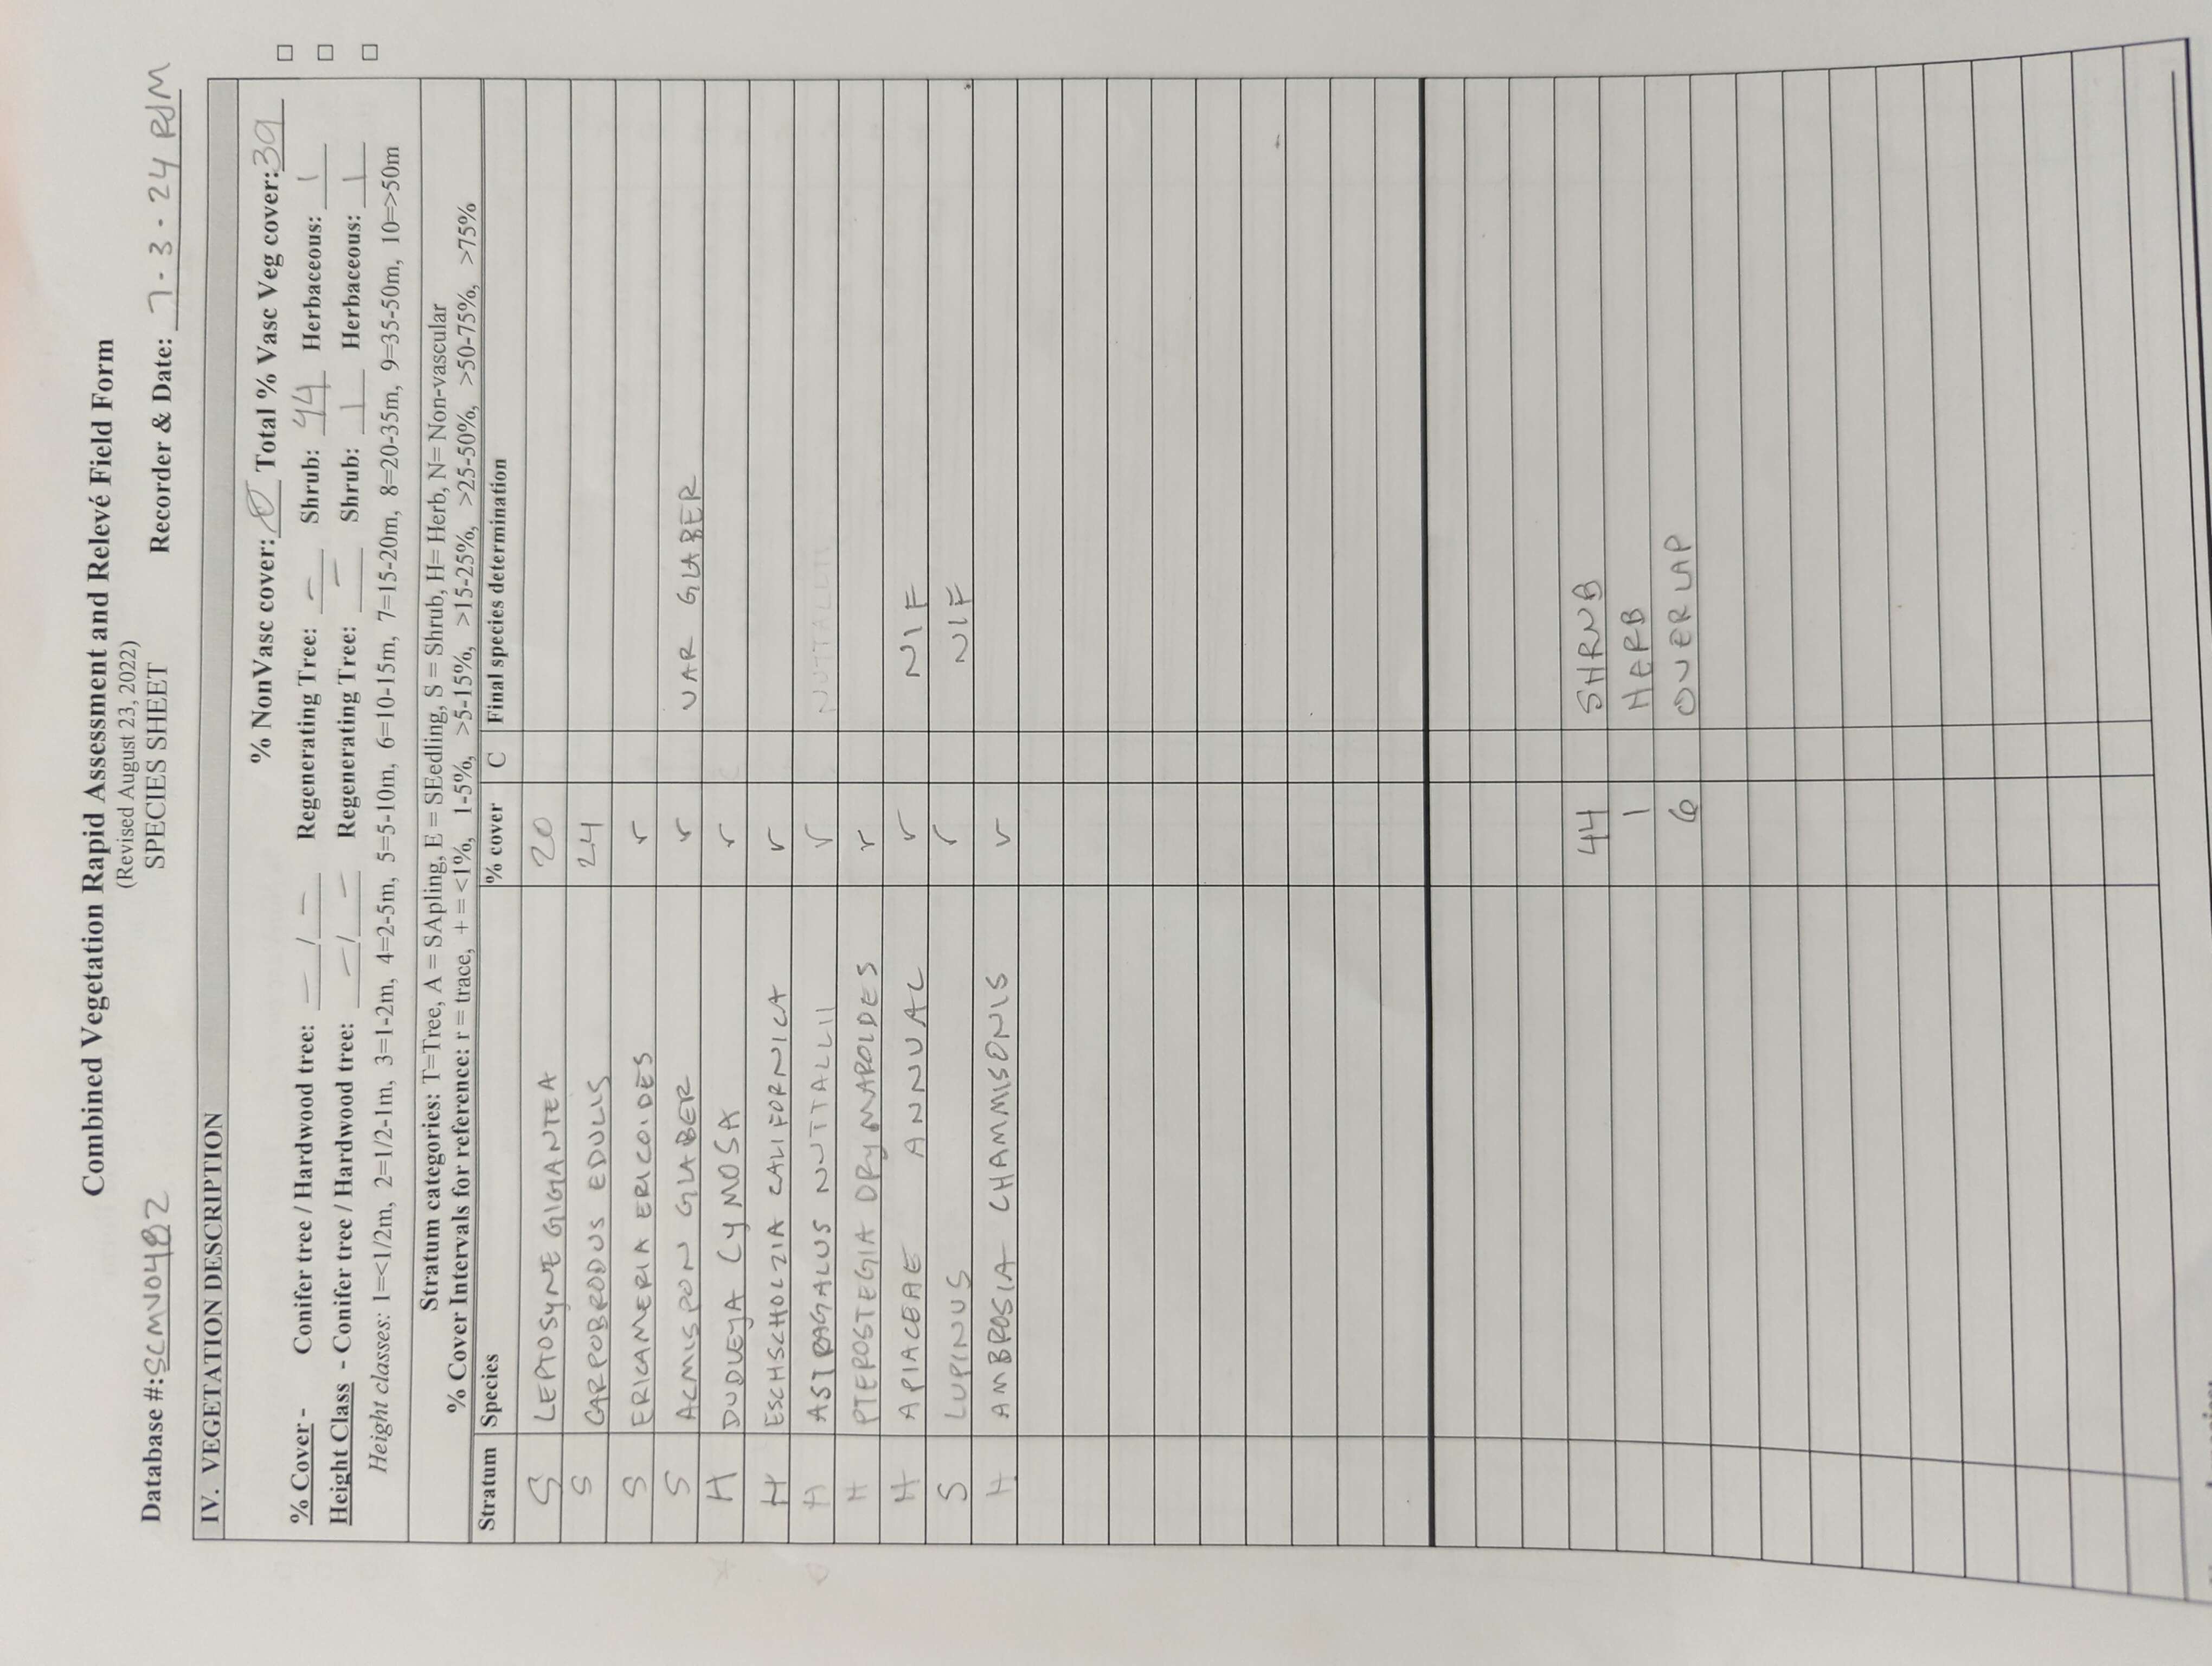 Combined Vegetation Rapid Assessment and Relevé Field Form
(Revised August 23, 2022)
SPECIES SHEET
Database #: SCMV0482 Recorder & Date: 7-3-24 RJM
IV. VEGETATION DESCRIPTION
% NonVasc cover: Ø Total % Vasc Veg cover: 39
% Cover - Conifer tree / Hardwood tree: - / - Regenerating Tree: - Shrub: 44 Herbaceous: 1
Height Class - Conifer tree / Hardwood tree: - / - Regenerating Tree: - Shrub: 1 Herbaceous: 1
Height classes: 1=<1/2m, 2=1/2-1m, 3=1-2m, 4=2-5m, 5=5-10m, 6=10-15m, 7=15-20m, 8=20-35m, 9=35-50m, 10=>50m
Stratum categories: T=Tree, A = SApling, E = SEedling, S = Shrub, H= Herb, N= Non-vascular
% Cover Intervals for reference: r = trace, + = <1%, 1-5%, >5-15%, >15-25%, >25-50%, >50-75%, >75%
Stratum Species % cover C Final species determination
S LEPTOSYNE GIGANTEA 20
S CARPOBRODUS EDULIS 24
S ERICAMERIA ERICOIDES r
S ACMISPON GLABER r VAR GLABER
H DUDLEYA CYMOSA r
H ESCHSCHOLZIA CALIFORNICA r
H ASTRAGALUS NUTTALLII r NUTTALLII
H PTEROSTEGIA DRYMARIOIDES r
H APIACEAE ANNUAL r NIF
S LUPINUS r NIF
H AMBROSIA CHAMMISONIS r
44 SHRUB
1 HERB
6 OVERLAP